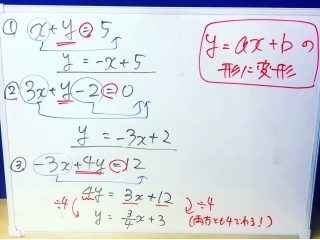 ① x+y=5
y=-x+5
y=ax+bの
形に変形
② 3x+y-2=0
y=-3x+2
③ -3x+4y=12
÷4 4y=3x+12 ÷4
y=3/4x+3 (両方とも4でわる!)